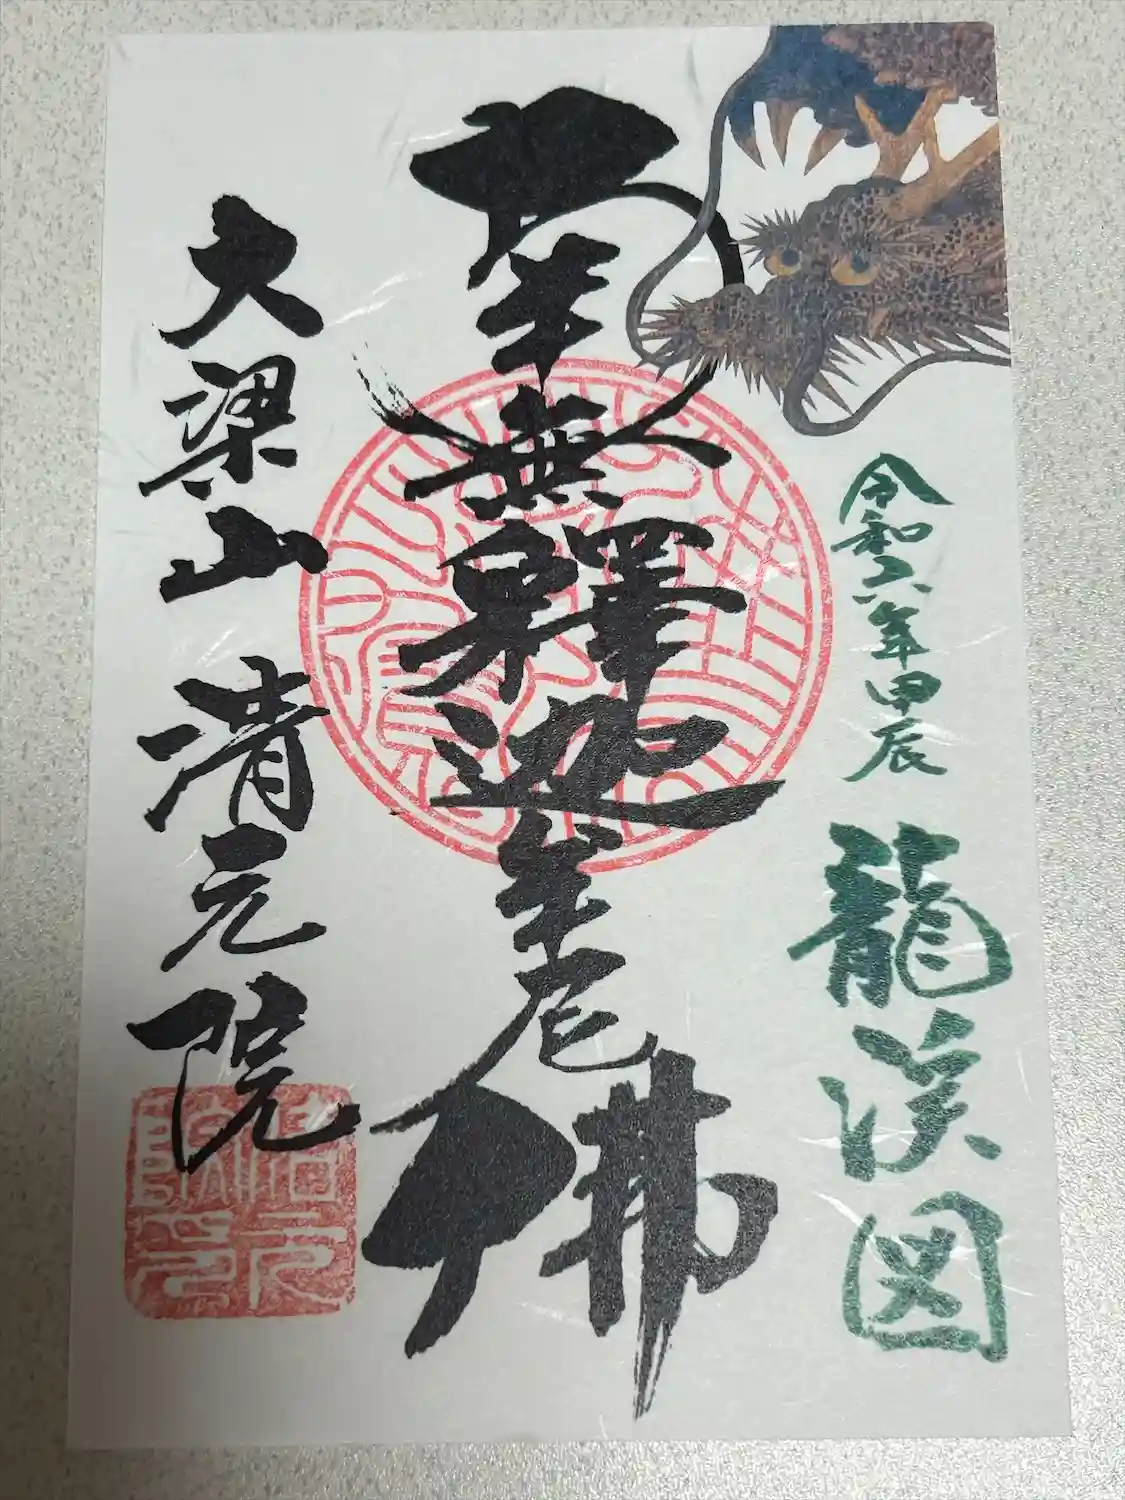 令和六年甲辰 龍渓図
南無釋迦牟尼佛
大梁山 清元院